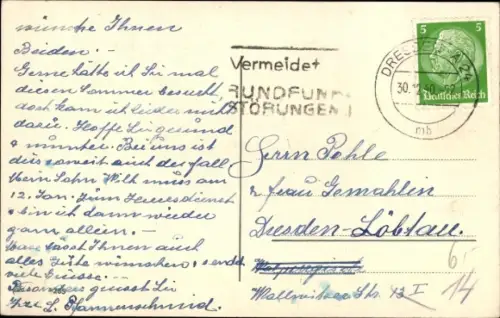 wünsche Ihnen
Beiden. –
Gerne hätte ich Sie mal
diesen Sommer besucht
doch kam ich leider nicht
dazu. Hoffe Sie gesund
u. munter. Bei uns ist
dies soweit auch der Fall
Mein Sohn muss am
12. Jan. zum Heeresdienst
bin ich dann wieder
ganz allein. –
lässt Ihnen auch
alles Gute wünschen, u. sendet
viele Grüsse. –
Besonders grüsst Sie
Ihre L. Pfannenschmid.
Vermeidet
RUNDFUNK
STÖRUNGEN
DRESDEN A 24
30.12.
mb
5 5
Deutsches Reich
Herrn Pohle
u. Frau Gemahlin
Dresden-Löbtau.
Wallwitzer Str. 13 I
6.-
14